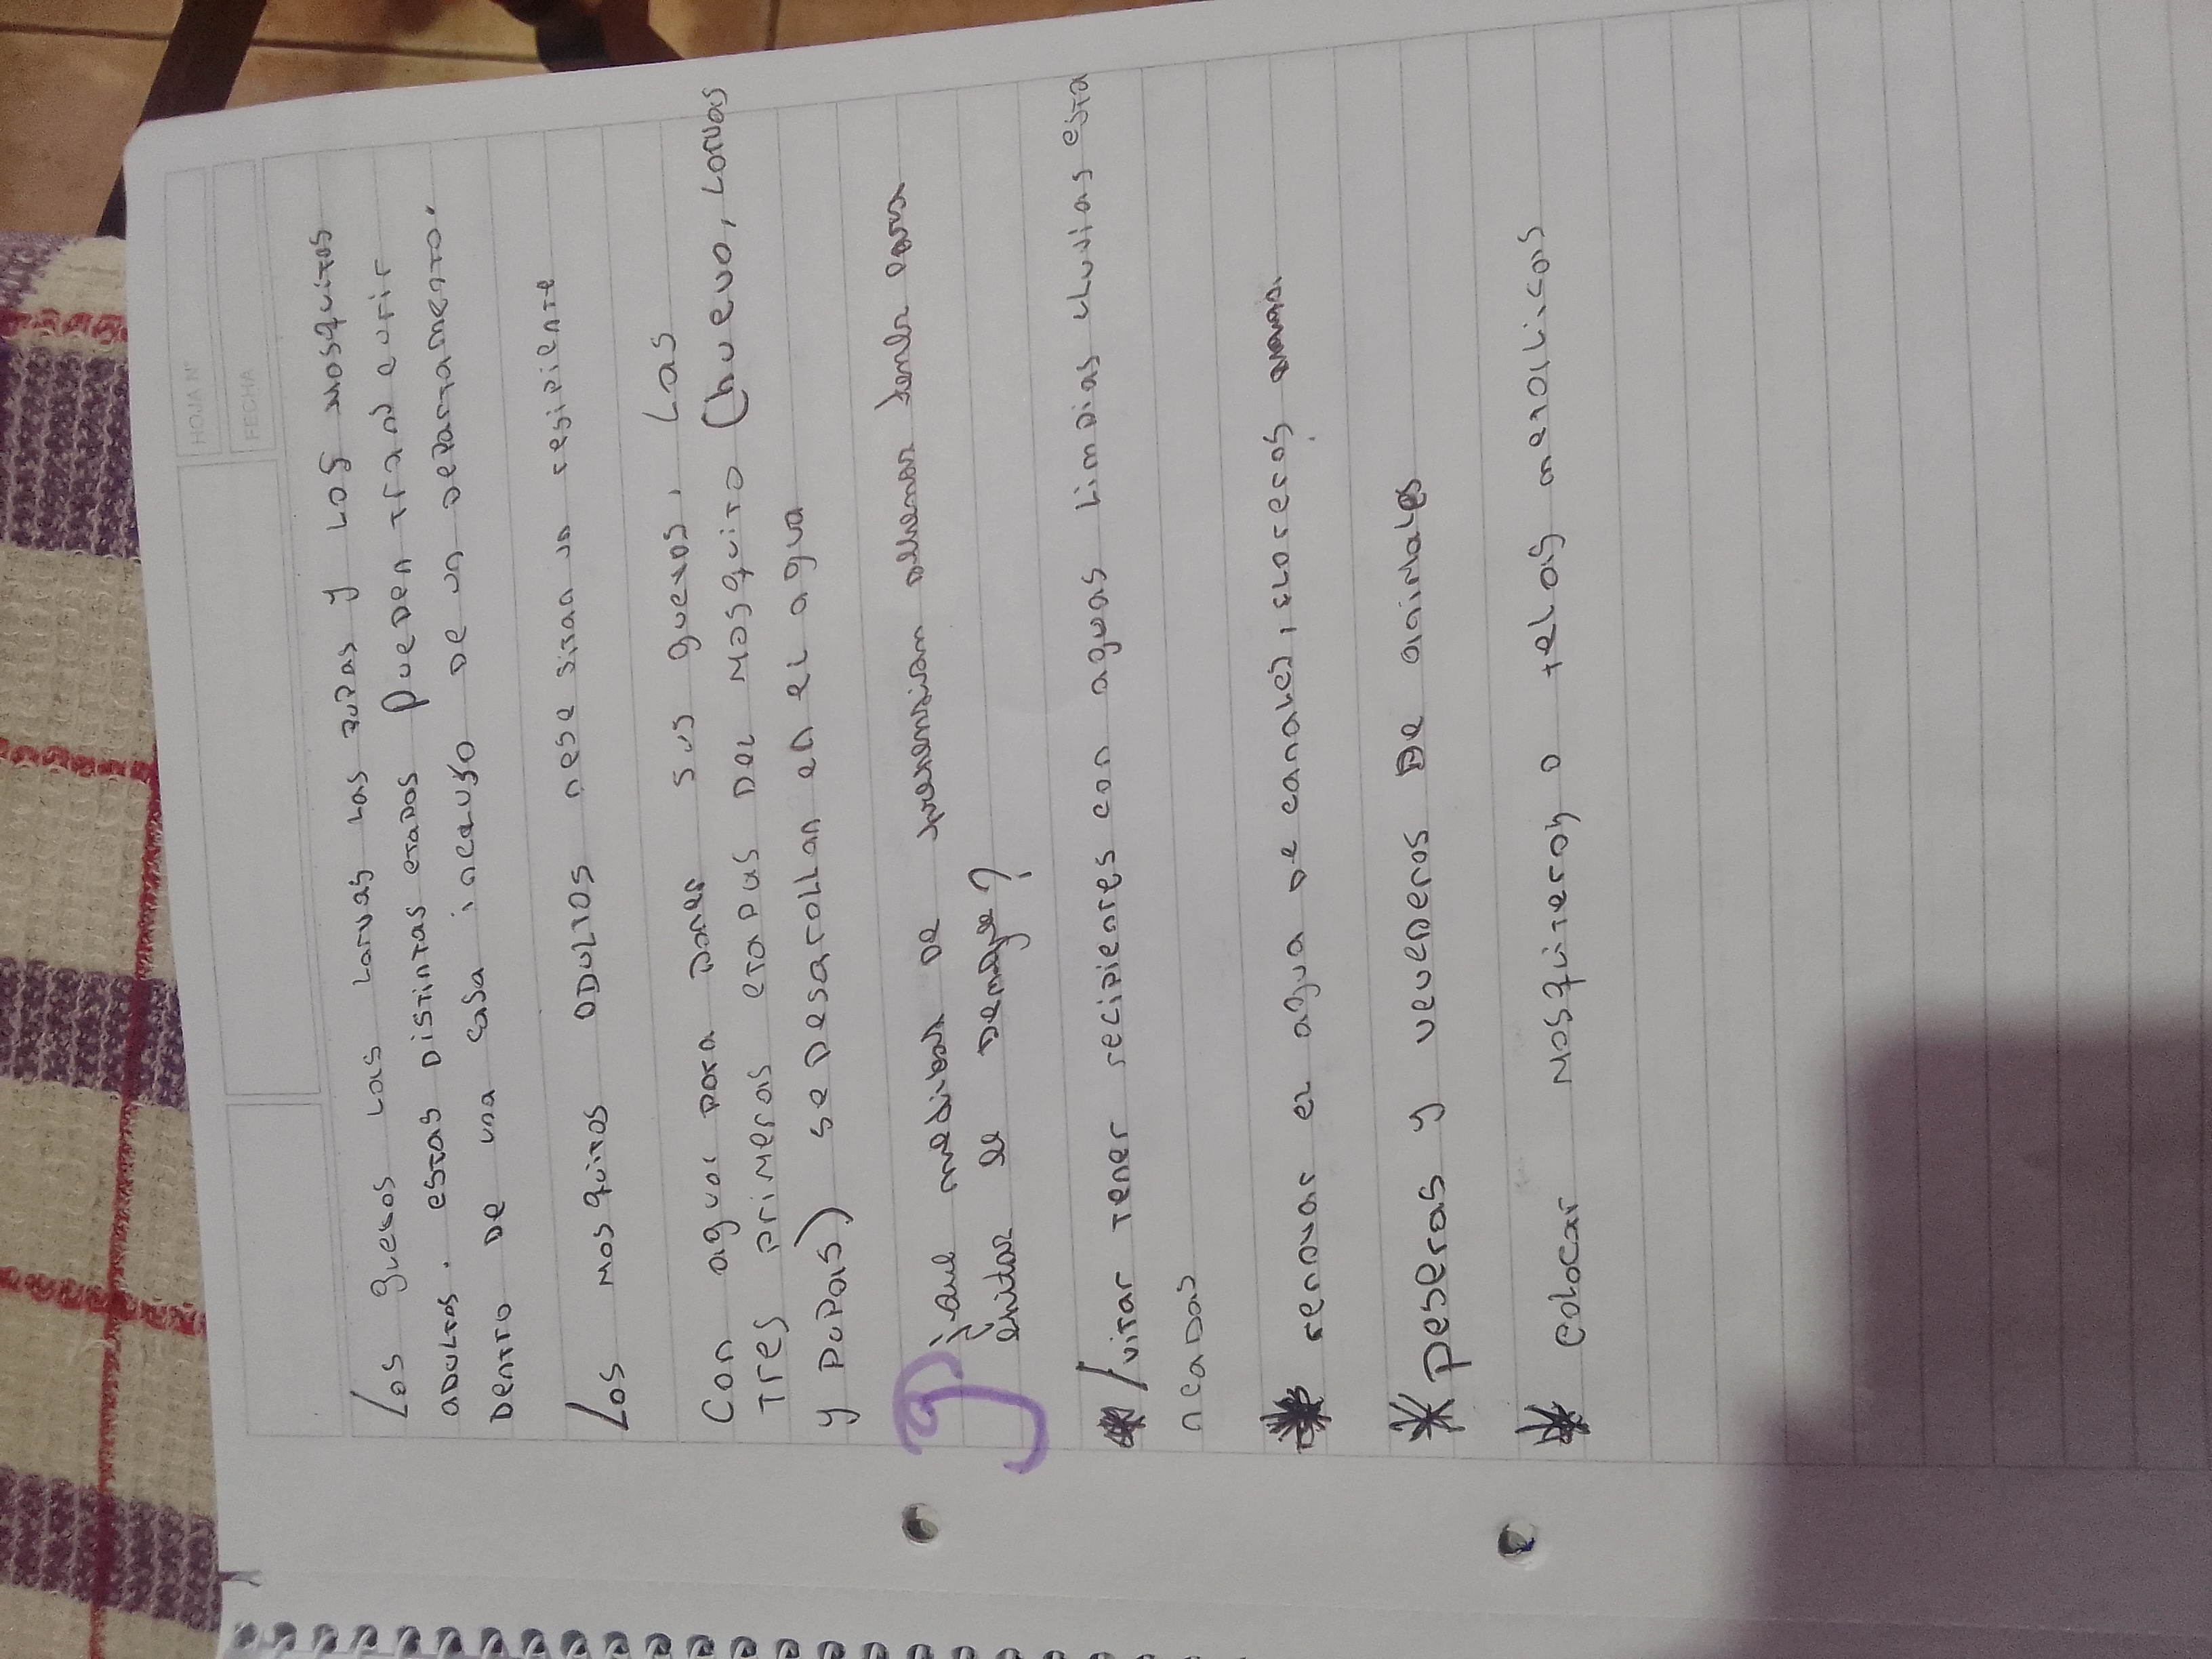 HOJA N°
FECHA
Los guevos las larvas las pupas y los mosquitos
adultos. estas distintas etados pueden trans curir
Dentro De una casa incluso De un Departamento.
Los mosquitos adultos nese sitan un resipiente
Con agua para Poner sus guevos, Las
Tres primeras etapas Del Mosquito (huevo, Larvas
y PuPas) se Desarollan en el agua
g) ¿que medidas De prevension devemos tener para
evitar el Dengue?
* evitar Tener recipientes con aguas limpias lluvias esta
ncadas
* renovar el agua De canales, floreros
* peseras y veveDeros De animales
* Colocar Mosquiteros o telas metalicas